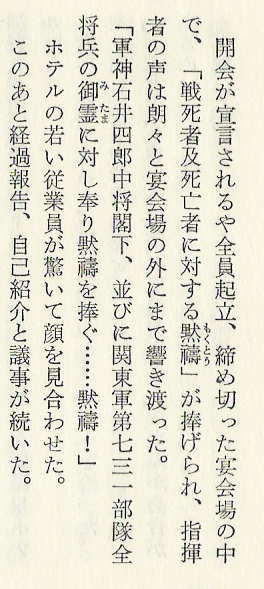 開会が宣言されるや全員起立、締め切った宴会場の中
で、「戦死者及死亡者に対する黙禱」が捧げられ、指揮
者の声は朗々と宴会場の外にまで響き渡った。
「軍神石井四郎中将閣下、並びに関東軍第七三一部隊全
将兵の御霊に対し奉り黙禱を捧ぐ……黙禱！」
ホテルの若い従業員が驚いて顔を見合わせた。
このあと経過報告、自己紹介と議事が続いた。